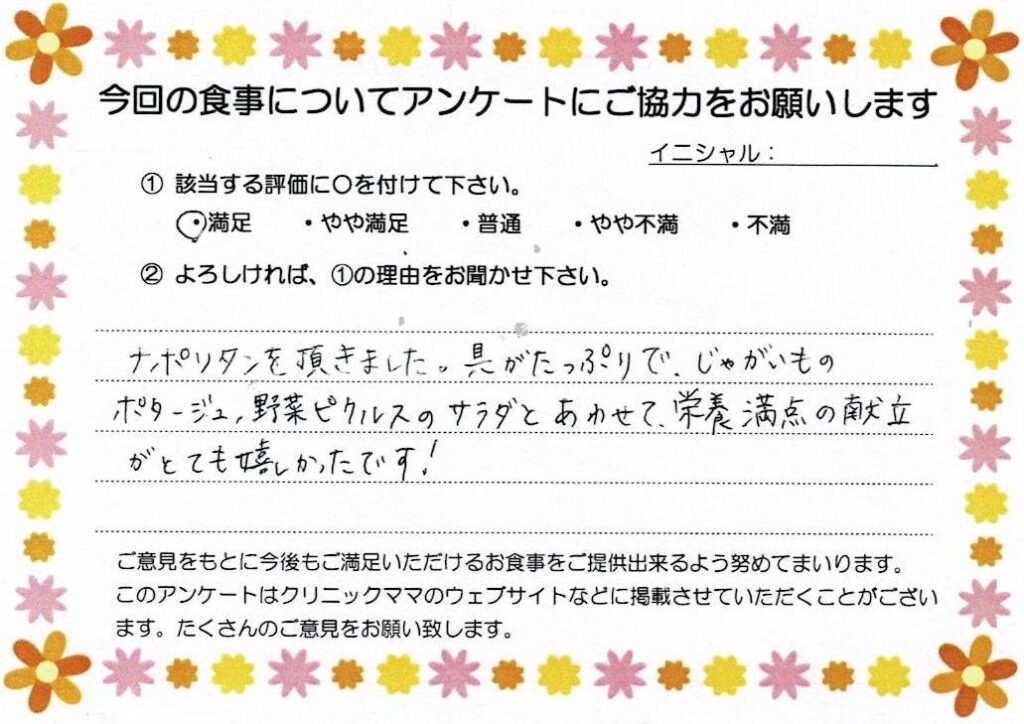 今回の食事についてアンケートにご協力をお願いします
イニシャル：
① 該当する評価に〇を付けて下さい。
・満足 ・やや満足 ・普通 ・やや不満 ・不満
② よろしければ、①の理由をお聞かせ下さい。
ナポリタンを頂きました。具がたっぷりで、じゃがいもの
ポタージュ、野菜ピクルスのサラダとあわせて、栄養満点の献立
がとても嬉しかったです！
ご意見をもとに今後もご満足いただけるお食事をご提供出来るよう努めてまいります。
このアンケートはクリニックママのウェブサイトなどに掲載させていただくことがござい
ます。たくさんのご意見をお願い致します。